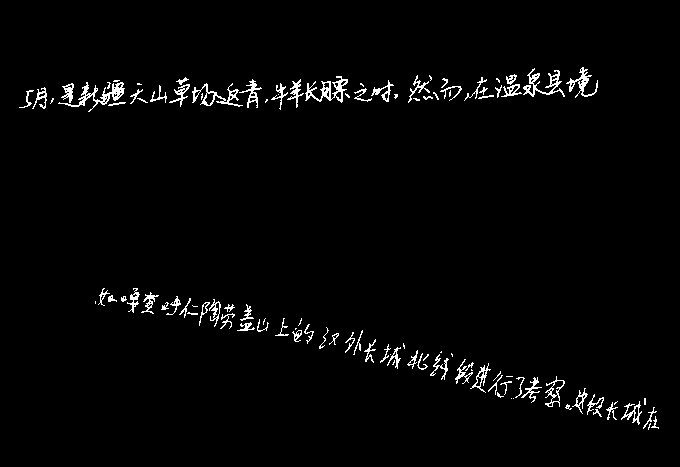 5月,是新疆天山草场返青,牛羊长膘之时。然而,在温泉县境
如嘎查呼仁陶劳盖山上的汉外长城北线段进行了考察。此段长城在